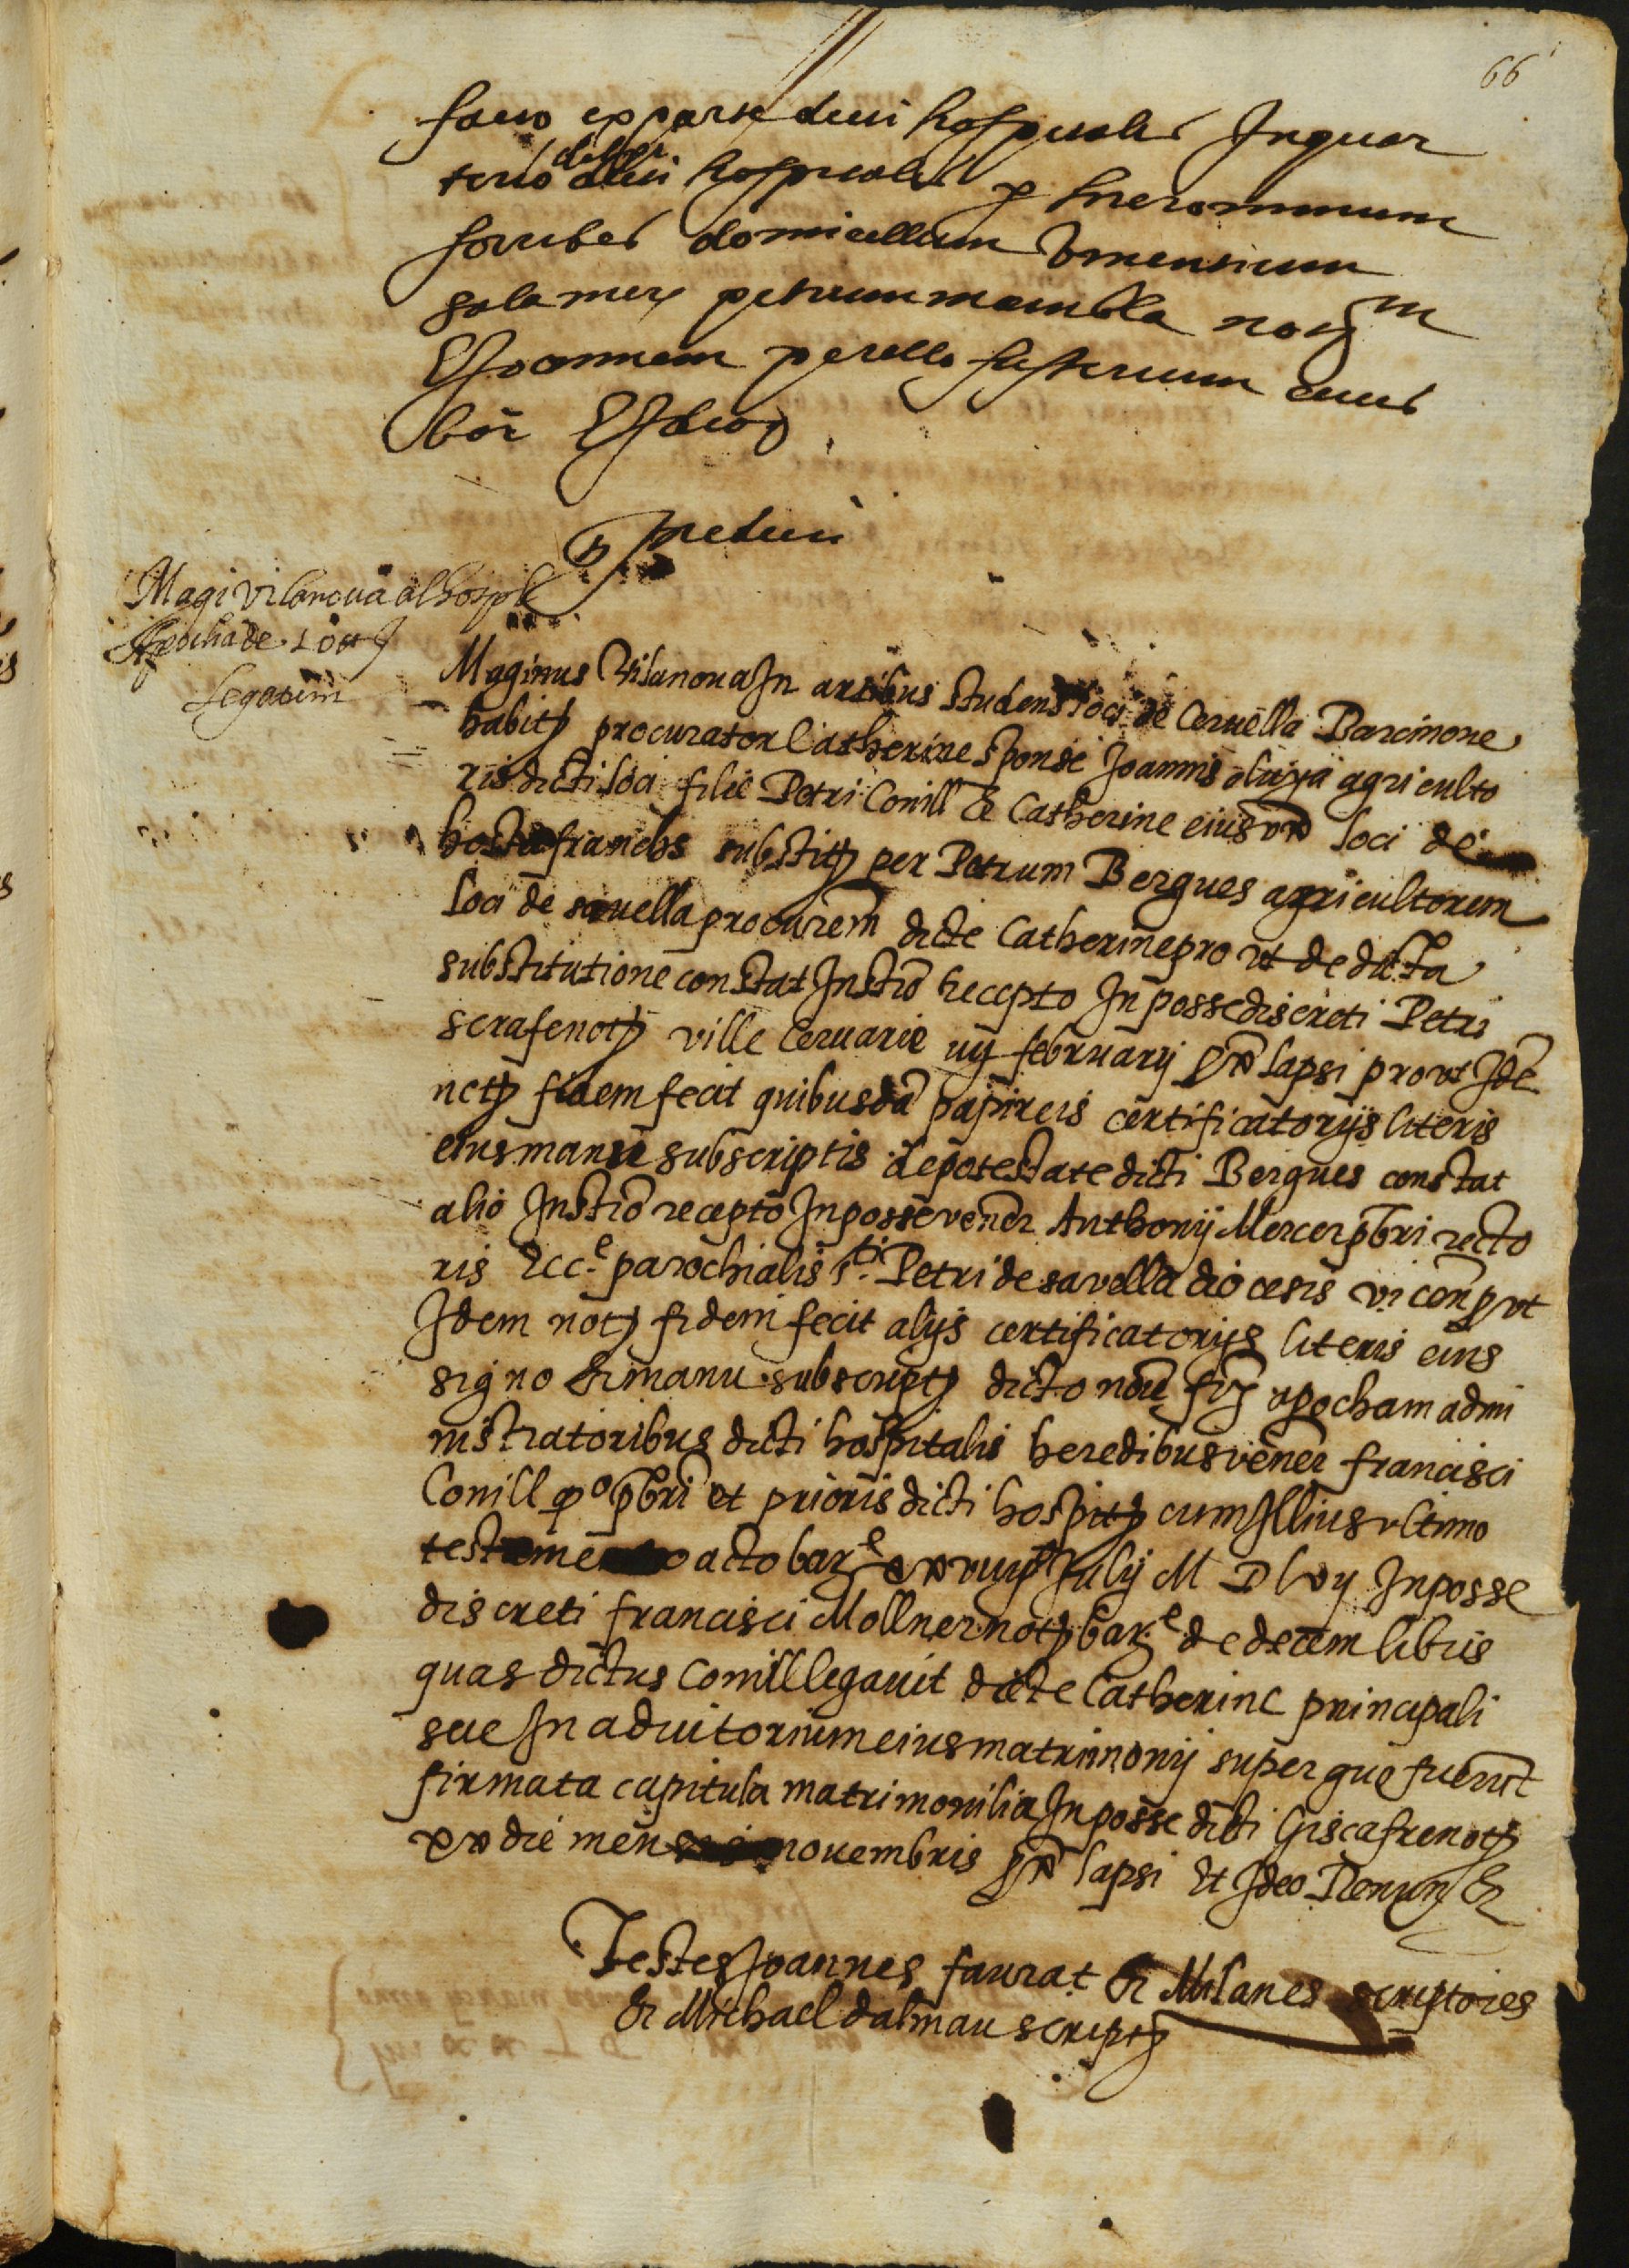 66
facto ex parte dicti hospitalis In quar
terio dicti hospitalis p hieronimum
sorribes domicellum Vincentium
petrum mambla notm
& Joannem perello fusterium cives
bar & Ideo
Magi Vilanova al hospl
Apocha de 10 tt
Legatum
Maginus Vilanova In artibus studens loci de Cervella Barcinone
habitz procurator Catherine sponse Joannis oluya agriculto
ris dicti loci filie Petri Conill & Catherine eius loci de
hostafranchs substitz per Petrum Bergues agricultorem
loci de savella procurem dicte Catherine pro vt de dicta
substitutione constat Instro recepto In posse discreti Petri
serafenotz ville Cervarie februarij lapsi prout Ide
notz fidem fecit quibusda papireis certificatorijs literis
eius manu subscriptis de potestate dicti Bergues constat
alio Instro recepto In posse vener Anthonij Mercer pbri recto
ris Ecce parochialis sti Petri de savella diocesis vicen put
Idem notz fidem fecit alijs certificatorijs literis eius
signo & manu subscriptz dicto noie apocham admi
nistratoribus dicti hospitalis heredibus vener francisci
Conill qo pbri et prioris dicti hospitz cum Illius vltimo
testamento acto bare Julij M D lvij In posse
discreti francisci Mollner notz bare de decem libris
quas dictus Conill legavit dicte Catherine principali
sue In adiutorium eius matrimonij super quo fuerunt
firmata capitula matrimonilia In posse dicti notz
xx die mensis novembris lapsi Et Ideo Renun &
Testes Joannes faurat & Milanes scriptores
& Michael dalmau scriptz